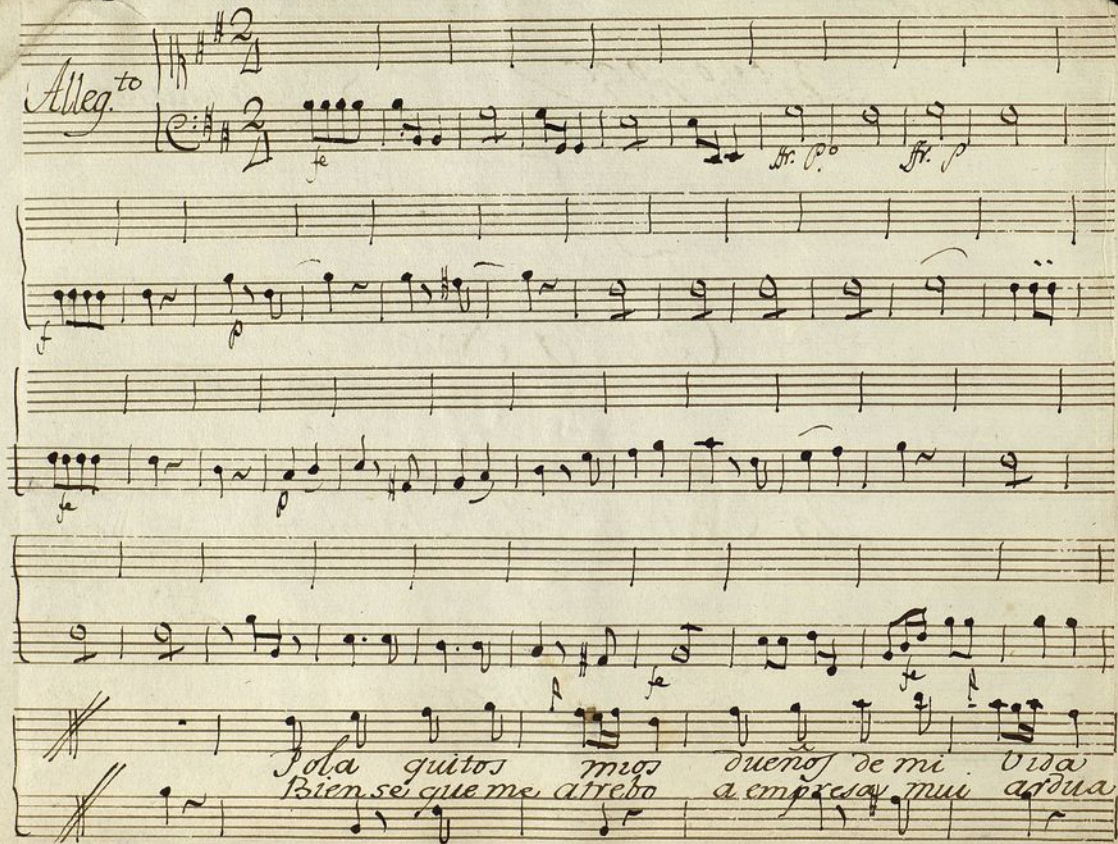 2
4
Alleg.to
2
4
fe
ffr. P.o
ffr. p
f
p
fe
p
p
fe
fe
p
Pola quitos mios dueños de mi vida
Bien sé que me atrebo a empresa mui ardua